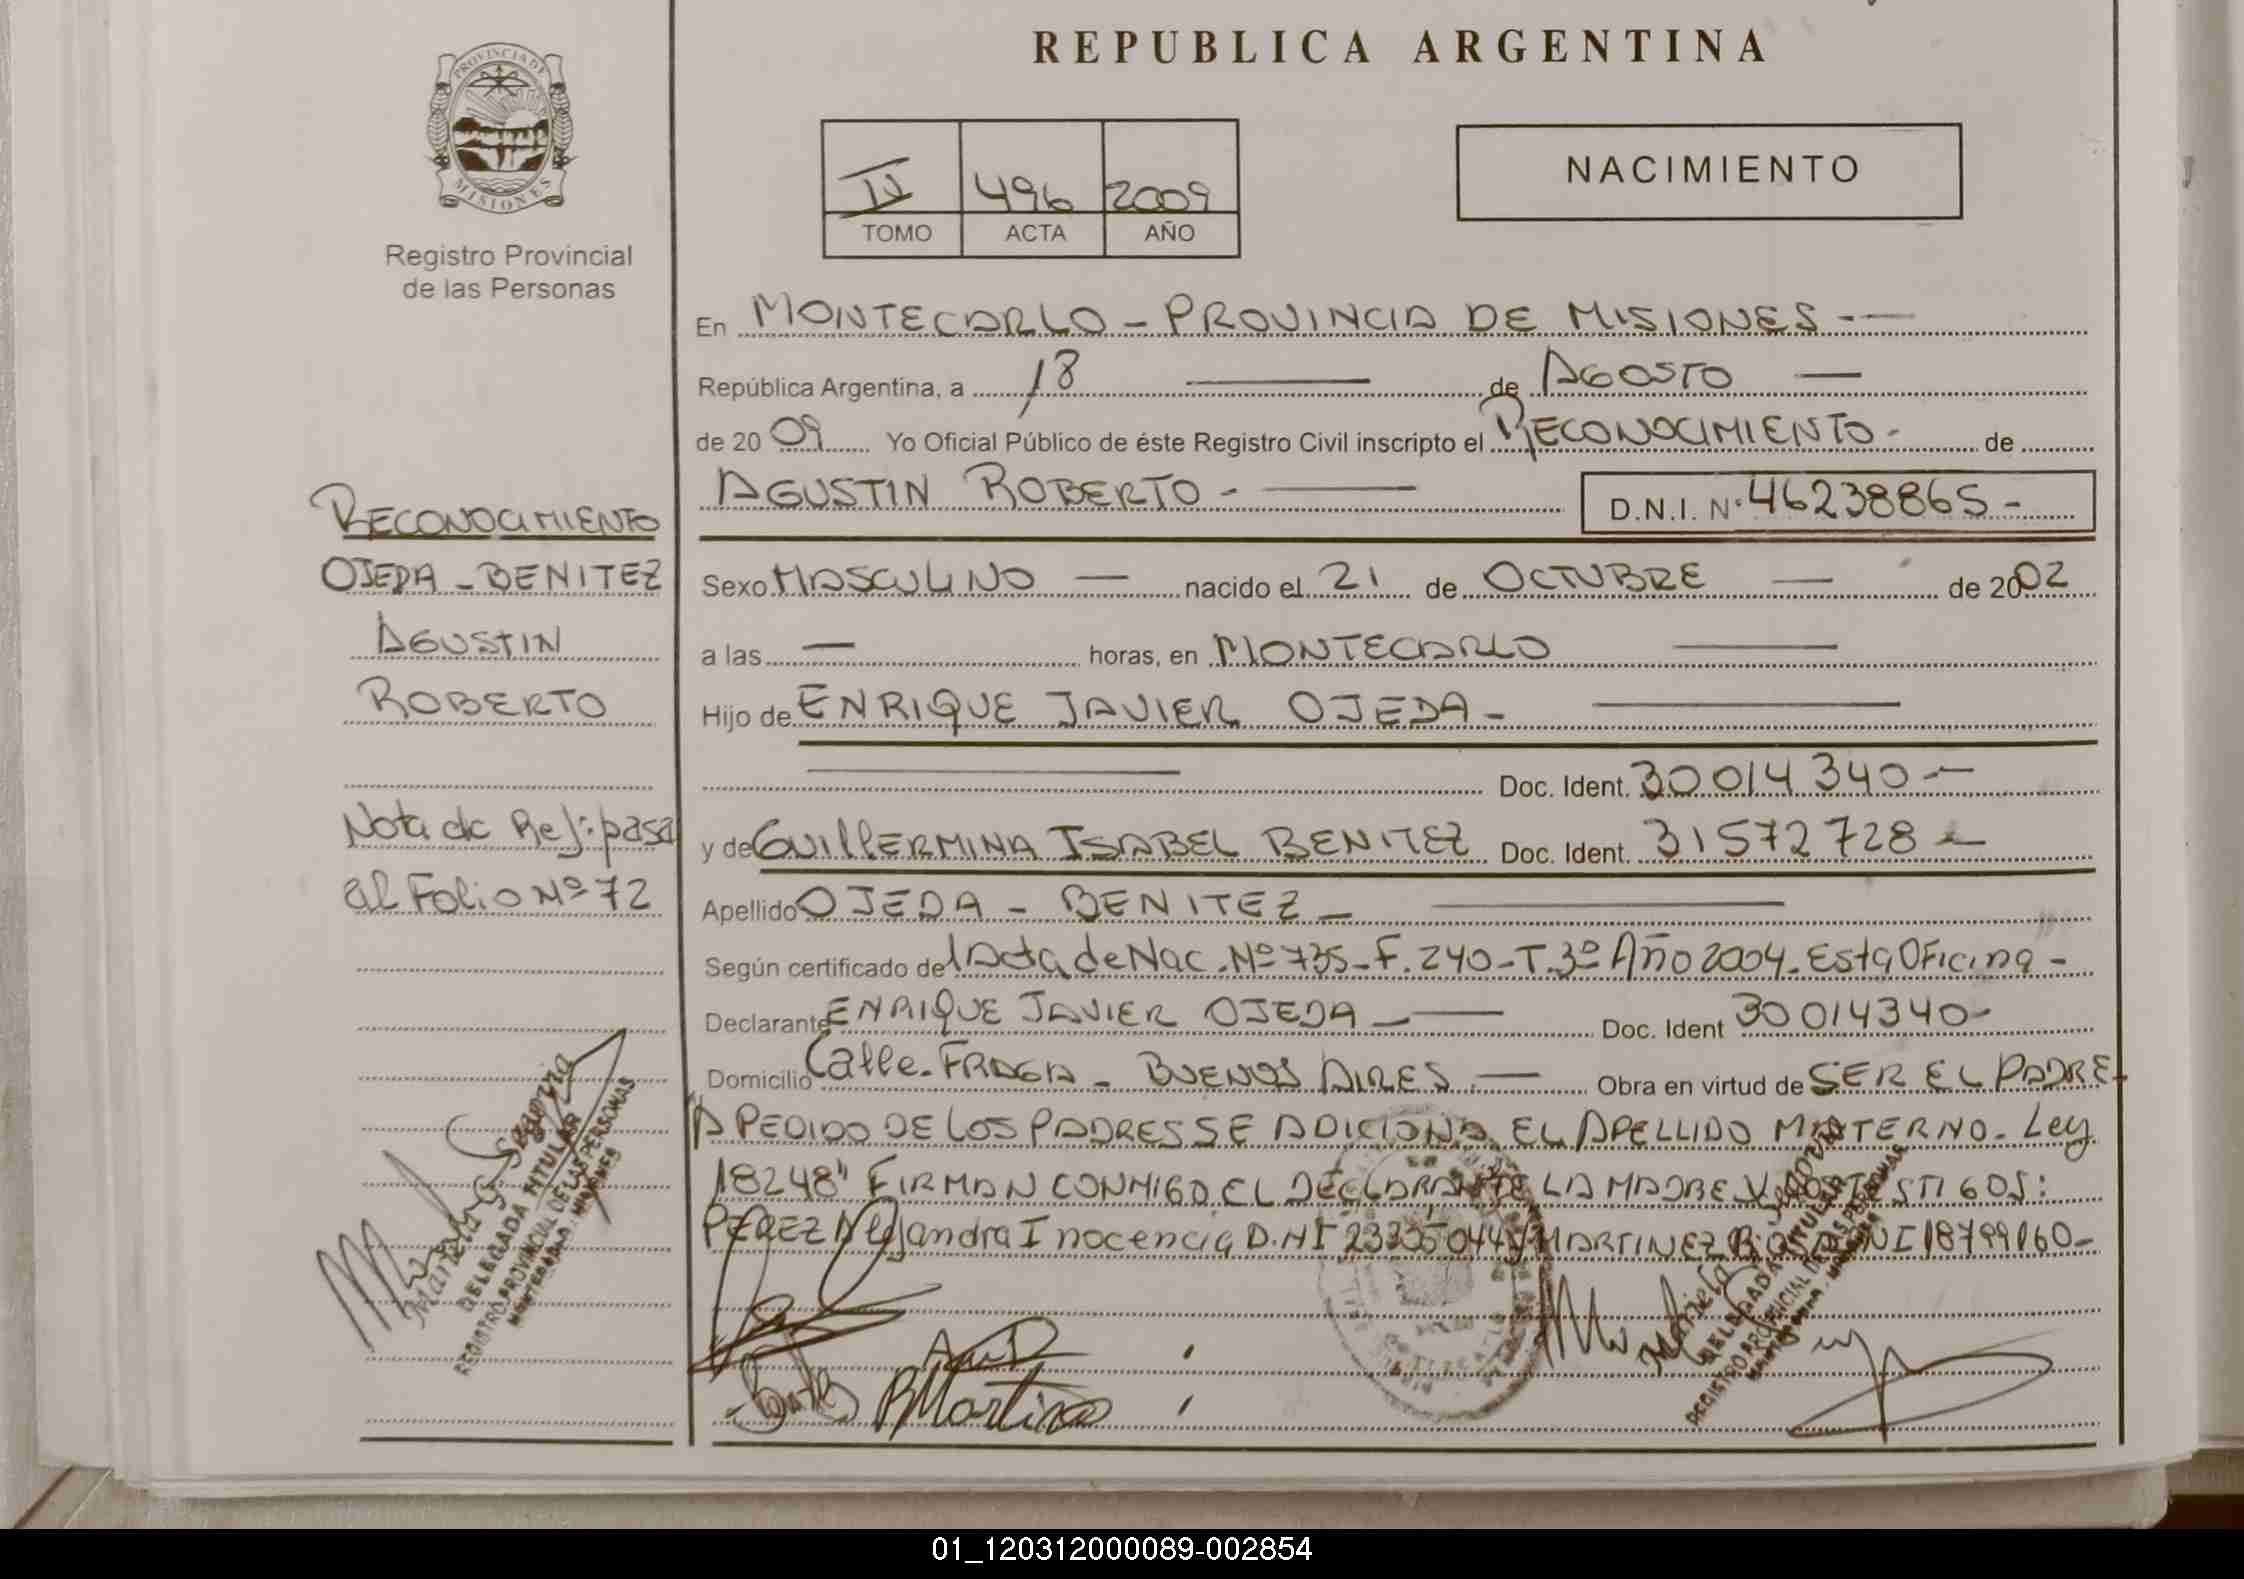 PROVINCIA DE
MISIONES
Registro Provincial
de las Personas
RECONOCIMIENTO
OJEDA - BENITEZ
AGUSTIN
ROBERTO
Nota de Ref: pasa
al Folio Nº 72
Mariela G. Segovia
DELEGADA TITULAR
REGISTRO PROVINCIAL DE LAS PERSONAS
REPUBLICA ARGENTINA
IV 496 2009
TOMO ACTA AÑO
NACIMIENTO
En MONTECARLO - PROVINCIA DE MISIONES -
República Argentina, a 18 de AGOSTO
de 2009 Yo Oficial Público de éste Registro Civil inscripto el RECONOCIMIENTO - de
AGUSTIN ROBERTO - D.N.I. Nº 46238865 -
Sexo MASCULINO nacido el 21 de OCTUBRE de 2002
a las — horas, en MONTECARLO
Hijo de ENRIQUE JAVIER OJEDA -
Doc. Ident. 30014340 -
y de GUILLERMINA ISABEL BENITEZ Doc. Ident. 31572728 -
Apellido OJEDA - BENITEZ -
Según certificado del Acta de Nac. Nº 735 - F. 240 - T. 3º Año 2004 - Esta Oficina -
Declarante ENRIQUE JAVIER OJEDA - Doc. Ident 30014340 -
Domicilio Calle - FRAGA - BUENOS AIRES. - Obra en virtud de SER EL PADRE -
"A PEDIDO DE LOS PADRES SE ADICIONA EL APELLIDO MATERNO - Ley
18248" FIRMAN CONMIGO EL DECLARANTE LA MADRE Y LOS TESTIGOS:
PEREZ Alejandra Inocencia D.NI 23335044 y MARTINEZ DNI 18799160 -
BMartinez
DELEGADA TITULAR
REGISTRO PROVINCIAL DE LAS PERSONAS
01_120312000089-002854